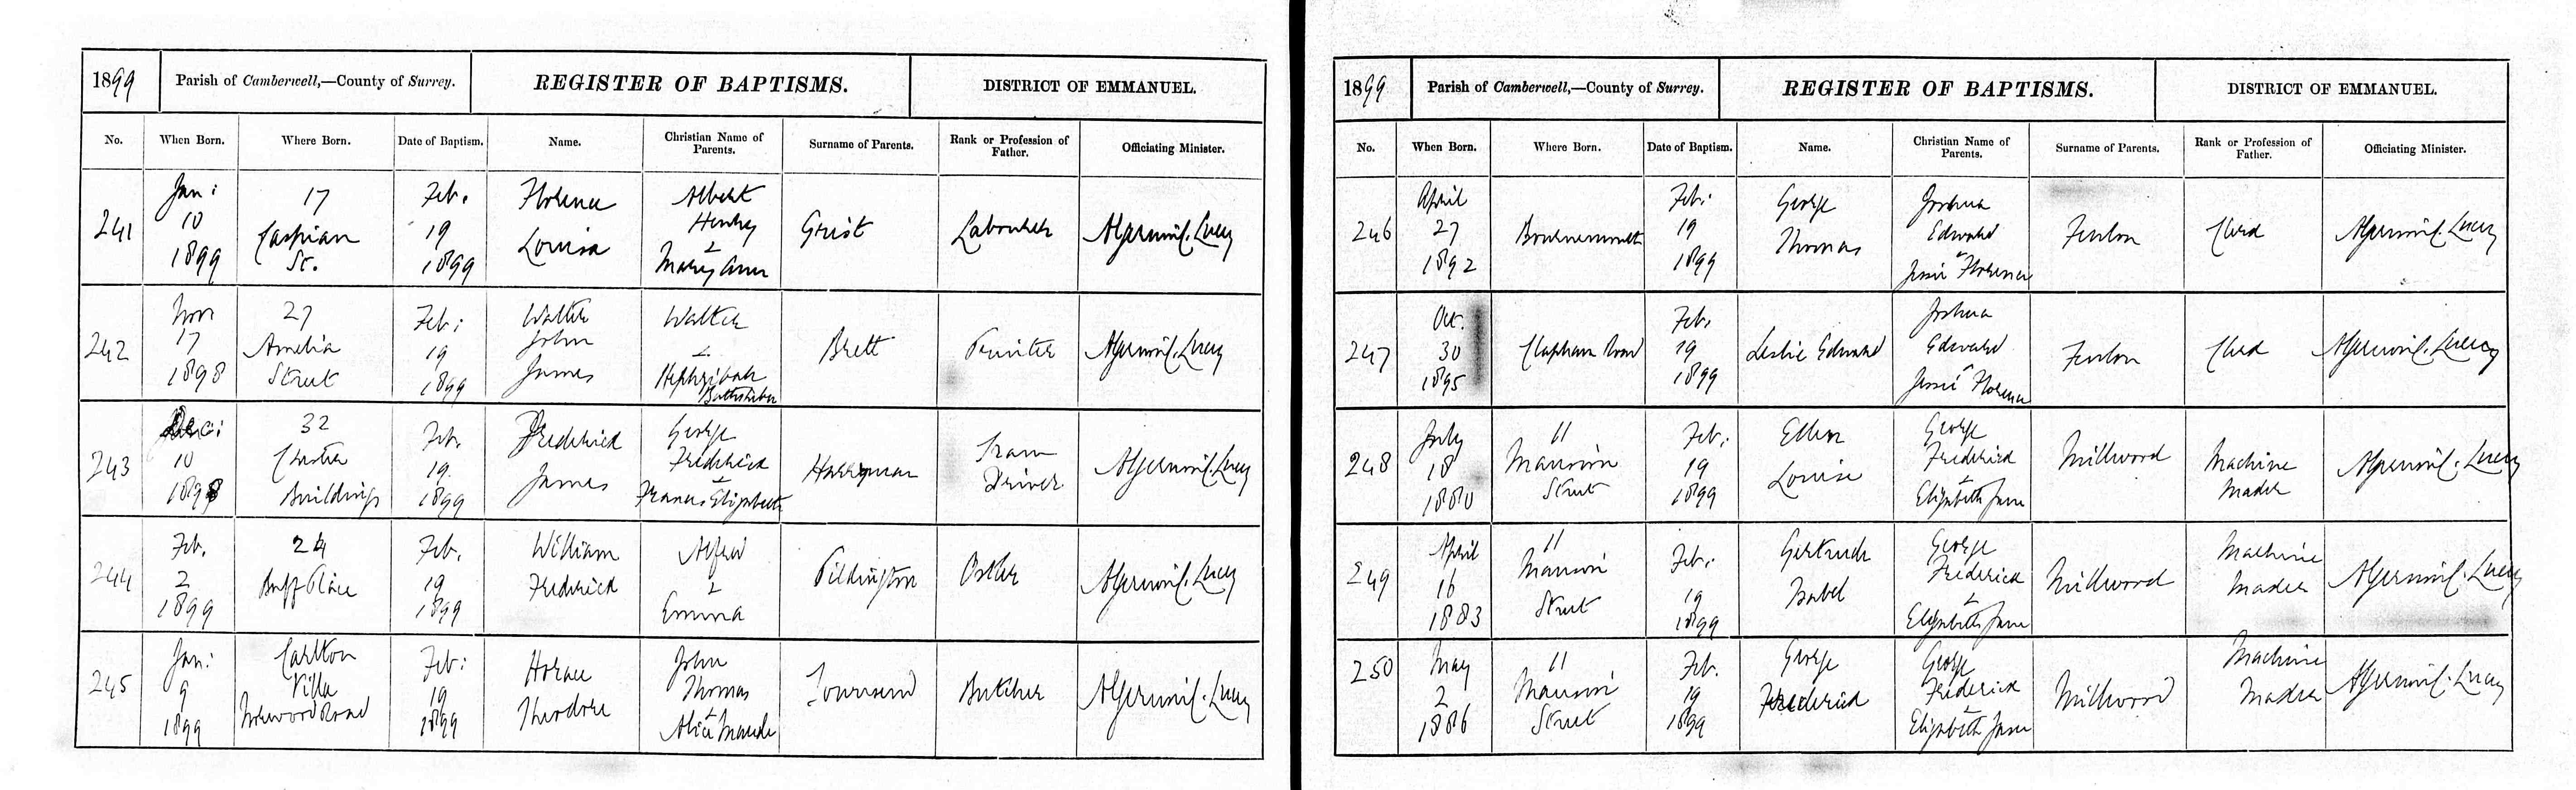 1899
Parish of Camberwell,—County of Surrey.
REGISTER OF BAPTISMS.
DISTRICT OF EMMANUEL.
No.
When Born.
Where Born.
Date of Baptism.
Name.
Christian Name of
Parents.
Surname of Parents.
Rank or Profession of
Father.
Officiating Minister.
241
Jan:
10
1899
17
Caspian
St.
Feb.
19
1899
Florence
Louisa
Albert
Henry
&
Mary Ann
Grist
Labourer
Algernon C. Lucy
242
Nov
17
1898
27
Amelia
Street
Feb:
19
1899
Walter
John
James
Walter
&
Hephzibah
Bathsheba
Brett
Printer
Algernon C. Lucy
243
Dec:
10
1898
32
Buildings
Feb.
19.
1899
Frederick
James
George
Frederick
&
Frances Elizabeth
Harryman
Tram
Driver
Algernon C. Lucy
244
Feb.
2
1899
24
Buff Place
Feb.
19
1899
William
Frederick
Alfred
&
Emma
Pilkington
Ostler
Algernon C. Lucy
245
Jan:
9
1899
Carlton
Villa
Norwood Road
Feb:
19
1899
Horace
Theodore
John
Thomas
&
Alice Maude
Townsend
Butcher
Algernon C. Lucy
1899
Parish of Camberwell,—County of Surrey.
REGISTER OF BAPTISMS.
DISTRICT OF EMMANUEL.
No.
When Born.
Where Born.
Date of Baptism.
Name.
Christian Name of
Parents.
Surname of Parents.
Rank or Profession of
Father.
Officiating Minister.
246
April
27
1892
Bournemouth
Feb:
19
1899
George
Thomas
Joshua
Edward
&
Jessie Florence
Fenton
Clerk
Algernon C. Lucy
247
Oct.
30
1895
Clapham Road
Feb.
19
1899
Leslie Edward
Joshua
Edward
&
Jessie Florence
Fenton
Clerk
Algernon C. Lucy
248
July
18
1880
11
Mansion
Street
Feb:
19
1899
Ellen
Louise
George
Frederick
&
Elizabeth Jane
Millwood
Machine
Maker
Algernon C. Lucy
249
April
16
1883
11
Mansion
Street
Feb:
19
1899
Gertrude
Isabel
George
Frederick
&
Elizabeth Jane
Millwood
Machine
Maker
Algernon C. Lucy
250
May
2
1886
11
Mansion
Street
Feb.
19
1899
George
Frederick
George
Frederick
&
Elizabeth Jane
Millwood
Machine
Maker
Algernon C. Lucy